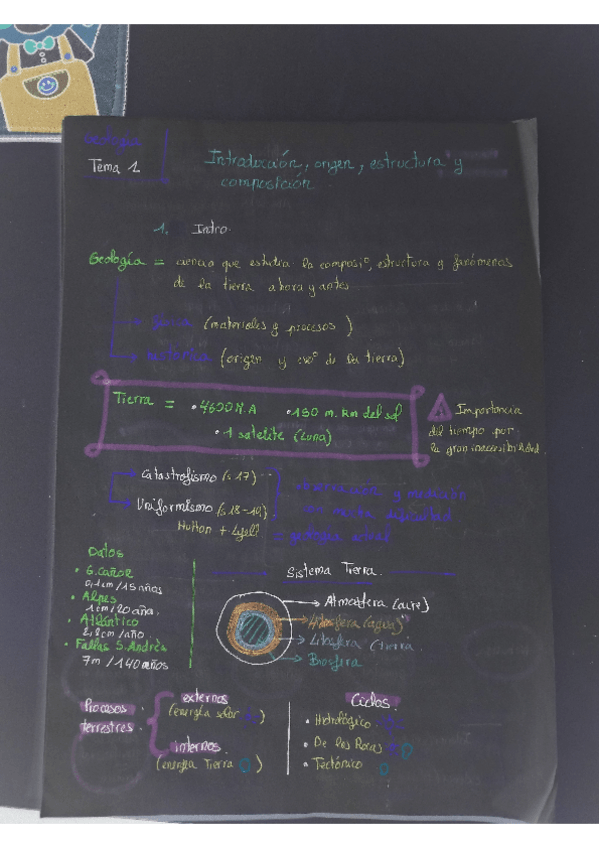 Geología
Tema 1
Introducción, origen, estructura y
composición.
1. Intro.
Geología = ciencia que estudia la composi°, estructura y fenómenos
de la tierra ahora y antes
→ física (materiales y procesos)
→ histórica (origen y evo° de la tierra)
Tierra = • 4600 M.A • 150 m. Km del sol
• 1 satelite (Luna)
Importancia
del tiempo por
la gran inaccesibilidad.
→ Catastrofismo (s.17)
→ Uniformismo (s.18-19)
Hutton + Lyell
observación y medición
= geología actual
Datos
• G. Cañón
• Alpes
1cm/20 años
• Atlántico
• Fallas S. Andrés
7m/140 años
Sistema Tierra.
→ Atmosfera (aire)
→ Hidrosfera (agua)
→ Litosfera (tierra
→ Biosfera
Procesos
terrestres.
externos
(energía solar )
internos.
(energía Tierra )
Ciclos
• Hidrológico
• De las Rocas
• Tectónico